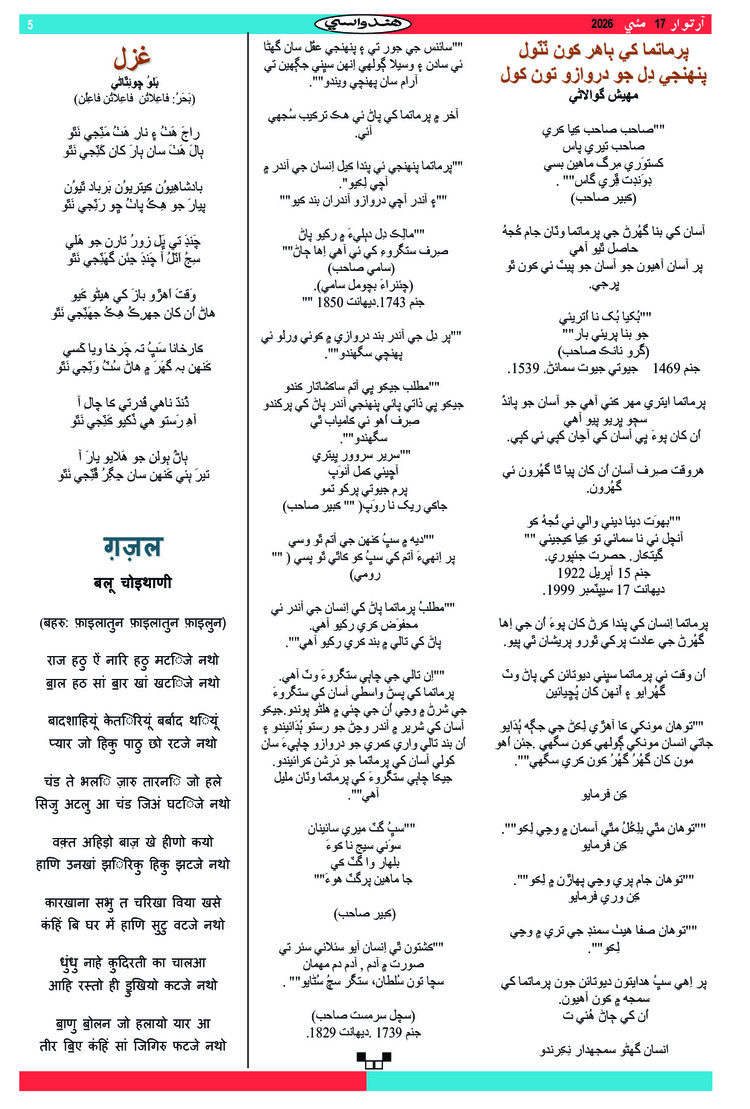 آرتوار 17 مئي 2026
هندواسي
5
پرماتما کي ٻاهر کون ٽٽول
پنهنجي دِل جو دروازو تون کول
مهيش گوالاڻي
""صاحب صاحب کِيا کري
صاحب تيري پاس
کستوَري مِرگ ماهين بسي
ڊوُنڊت ڦِري گاس"" .
(کبير صاحب)
آسان کي بنا گهُرڻ جي پرماتما وٽان ڄام کُجهہ
حاصل ٿيو آهي
پر آسان آهيون جو آسان جو پيٽ ئي کون ٿو
ڀرجي.
""ٻُکيا ٻُک نا اُتريئي
جو بنا پريئي بار""
(گرو نانک صاحب)
جنم 1469 جيوتي جيوت سمائڻ. 1539.
پرماتما ايتري مهر کئي آهي جو آسان جو پاند
سڄو ڀريو پيو آهي
اُن کان پوءَ ڀي آسان کي آڃان کپي ئي کپي.
هروقت صرف آسان اُن کان پيا ٿا گهُرون ئي
گهُرون.
""بهوَت ديئا ديني والي ني تُجهُ کو
آنچل ئي نا سمائي تو کِيا کيجيئي ""
گيتکار. حصرت جئپوري.
جنم 15 آپريل 1922
ديهانت 17 سيپٽمبر 1999.
پرماتما اِنسان کي پئدا کرڻ کان پوءَ اُن جي اِها
گهُرڻ جي عادت پرکي ٿورو پريشان ٿي پيو.
اُن وقت ئي پرماتما سڀني ديوتائن کي پاڻ وٽ
گهُرايو ۽ اُنهن کان پُڇيائين
""توهان مونکي کا آهڙي لِکڻ جي جڳهه ٻُڌايو
جاتي انسان مونکي ڳولهي کون سگهي .جئن اُهو
مون کان گهُرُ گهُرُ کون کري سگهي"".
کِن فرمايو
""توهان مٿي بِلڪُلُ مٿي آسمان ۾ وڃي لِکو"".
کِن فرمايو
""توهان ڄام پري وڃي پهاڙن ۾ لِکو"".
کِن وري فرمايو
""توهان صفا هيٺ سمنڊ جي تري ۾ وڃي
لِکو"".
پر اِهي سڀُ هدايتون ديوتائن جون پرماتما کي
سمجه ۾ کون آهيون.
اُن کي ڄاڻ هُئي ت
انسان گهڻو سمجهدار نِکِرندو
""سائنس جي جور تي ۽ پنهنجي عقُل سان گهڻا
ئي سادن ۽ وسيلا ڳولهي اِنهن سڀني جڳهين تي
آرام سان پهنچي ويندو"".
آخر ۾ پرماتما کي پاڻ ئي هڪ ترکيب سُجهي
آئي.
""پرماتما پنهنجي ئي پئدا کيل اِنسان جي آندر ۾
آچي لِکيو".
""۽ آندر آچي دروازو آندران بند کيو""
""مالِڪ دِل دٻليءَ ۾ رکيو پاڻ
صِرف ستگروءِ کي ئي آهي اِها ڄاڻ""
(سامي صاحب)
(چئنراءَ بچومل سامي).
جنم 1743.ديهانت 1850 ""
""پر دِل جي آندر بند دروازي ۾ کوئي ورلو ئي
پهنچي سگهندو"".
""مطلب جيکو ڀي آتم ساکشاتار کندو
جيکو ڀي ذاتي پائي پنهنجي آندر پاڻ کي پرکندو
صرف اُهو ئي کامياب ٿي
سگهندو"".
""سرير سروور ڀيتري
آڇيئي کمل آنوُپ
پرم جيوتي پرکو تمو
جاکي ريک نا روُپ( "" کبير صاحب)
""ديه ۾ سڀُ کنهن جي آتم ٿو وسي
پر اِنهيءَ آتم کي سڀُ کو کاٿي ٿو پسي ( ""
رومي)
""مطلبُ پرماتما پاڻ کي اِنسان جي آندر ئي
محفوَض کري رکيو آهي.
پاڻ کي تالي ۾ بند کري رکيو آهي"".
""اِن تالي جي چاٻي ستگروءَ وٽ آهي.
پرماتما کي پسڻ واسطي آسان کي ستگروءَ
جي شرڻ ۾ وڃي اُن جي چئي ۾ هلڻو پوندو.جيکو
آسان کي شرير ۾ آندر وڃڻ جو رستو ٻُڌائيندو ۽
اُن بند تالي واري کمري جو دروازو چاٻيءَ سان
کولي آسان کي پرماتما جو دَرشن کرائيندو.
جيکا چاٻي ستگروءَ کي پرماتما وٽان مليل
آهي"".
""سڀُ گٽَ ميري سائينان
سوَني سيج نا کوءَ
بلهار وا گٽَ کي
جا ماهين پرگٽَ هوءَ""
(کبير صاحب)
""کشتون ٿي اِنسان آيو سئلاني سئر تي
صورت ۾ آدم , آدم دم مهمان
سچا تون سُلطان، ستگر سچُ سُڃايو"" .
(سچل سرمست صاحب)
جنم 1739 .ديهانت 1829.
غزل
ٻَلوُ چوئٿاڻي
(بَحَرُ: فاعِلاتُن فاعِلاتُن فاعِلُن)
راجَ هَٺُ ۽ نارِ هَٺُ مَٽِجي نَٿو
ٻالَ هَٺَ سان ٻارَ کان کَٽِجي نَٿو
بادشاهِيوُن کيتريوُن بَرباد ٿَيوُن
پيارَ جو هِڪُ پاٺُ ڇو رَٽِجي نَٿو
چَنڊَ تي ڀَلِ زورُ تارن جو هَلي
سِجُ اٽَلُ آ چَنڊَ جِئن گَهٽِجي نَٿو
وَقتَ اَهِڙو بازَ کي هيڻو کَيو
هاڻِ اُن کان جهِرڪُ هِڪُ جَهٽِجي نَٿو
کارخانا سَڀُ تہ چَرخا ويا کَسي
کَنهِن بہ گَهَرَ ۾ هاڻِ سُٽُ وَٽِجي نَٿو
ڌُنڌُ ناهي قُدرتي کا چال آ
آهِ رَستو هي ڏُکيو کَٽِجي نَٿو
ٻاڻُ ٻولن جو هَلايو يارَ آ
تيرَ ٻئي کَنهِن سان جِگِرُ ڦَٽِجي نَٿو
ग़ज़ल
बलू चोइथाणी
(बहरु: फ़ाइलातुन फ़ाइलातुन फ़ाइलुन)
राज हठु ऐं नारि हठु मटिजे नथो
ॿाल हठ सां ॿार खां खटिजे नथो
बादशाहियूं केतिरियूं बर्बाद थियूं
प्यार जो हिकु पाठु छो रटजे नथो
चंड ते भलि ज़ारु तारनि जो हले
सिजु अटलु आ चंड जिअं घटिजे नथो
वक़्त अहिड़ो बाज़ खे हीणो कयो
हाणि उनखां झिरिकु हिकु झटजे नथो
कारखाना सभु त चरिखा विया खसे
कंहिं बि घर में हाणि सुटु वटजे नथो
धुंधु नाहे कुदिरती का चालआ
आहि रस्तो ही ॾुखियो कटजे नथो
ॿाणु ॿोलन जो हलायो यार आ
तीर ॿिए कंहिं सां जिगिरु फटजे नथो